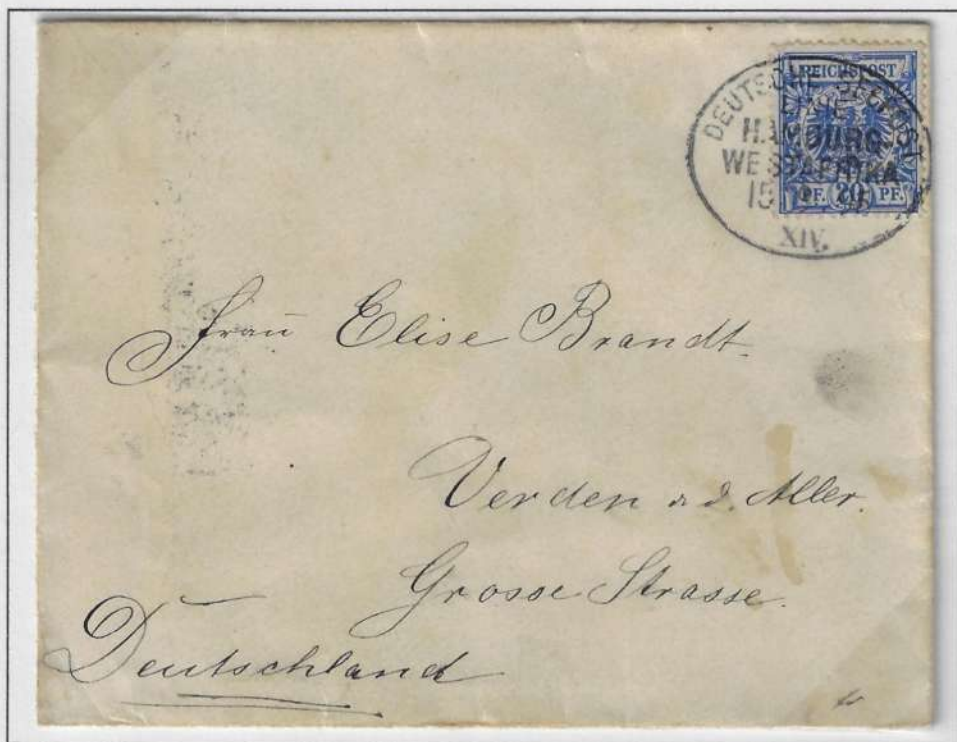 REICHSPOST
PF. 20 PF.
DEUTSCHE SEEPOST
LINIE
HAMBURG
WESTAFRIKA
XIV.
Frau Elise Brandt.
Verden a. d. Aller.
Grosse Strasse.
Deutschland